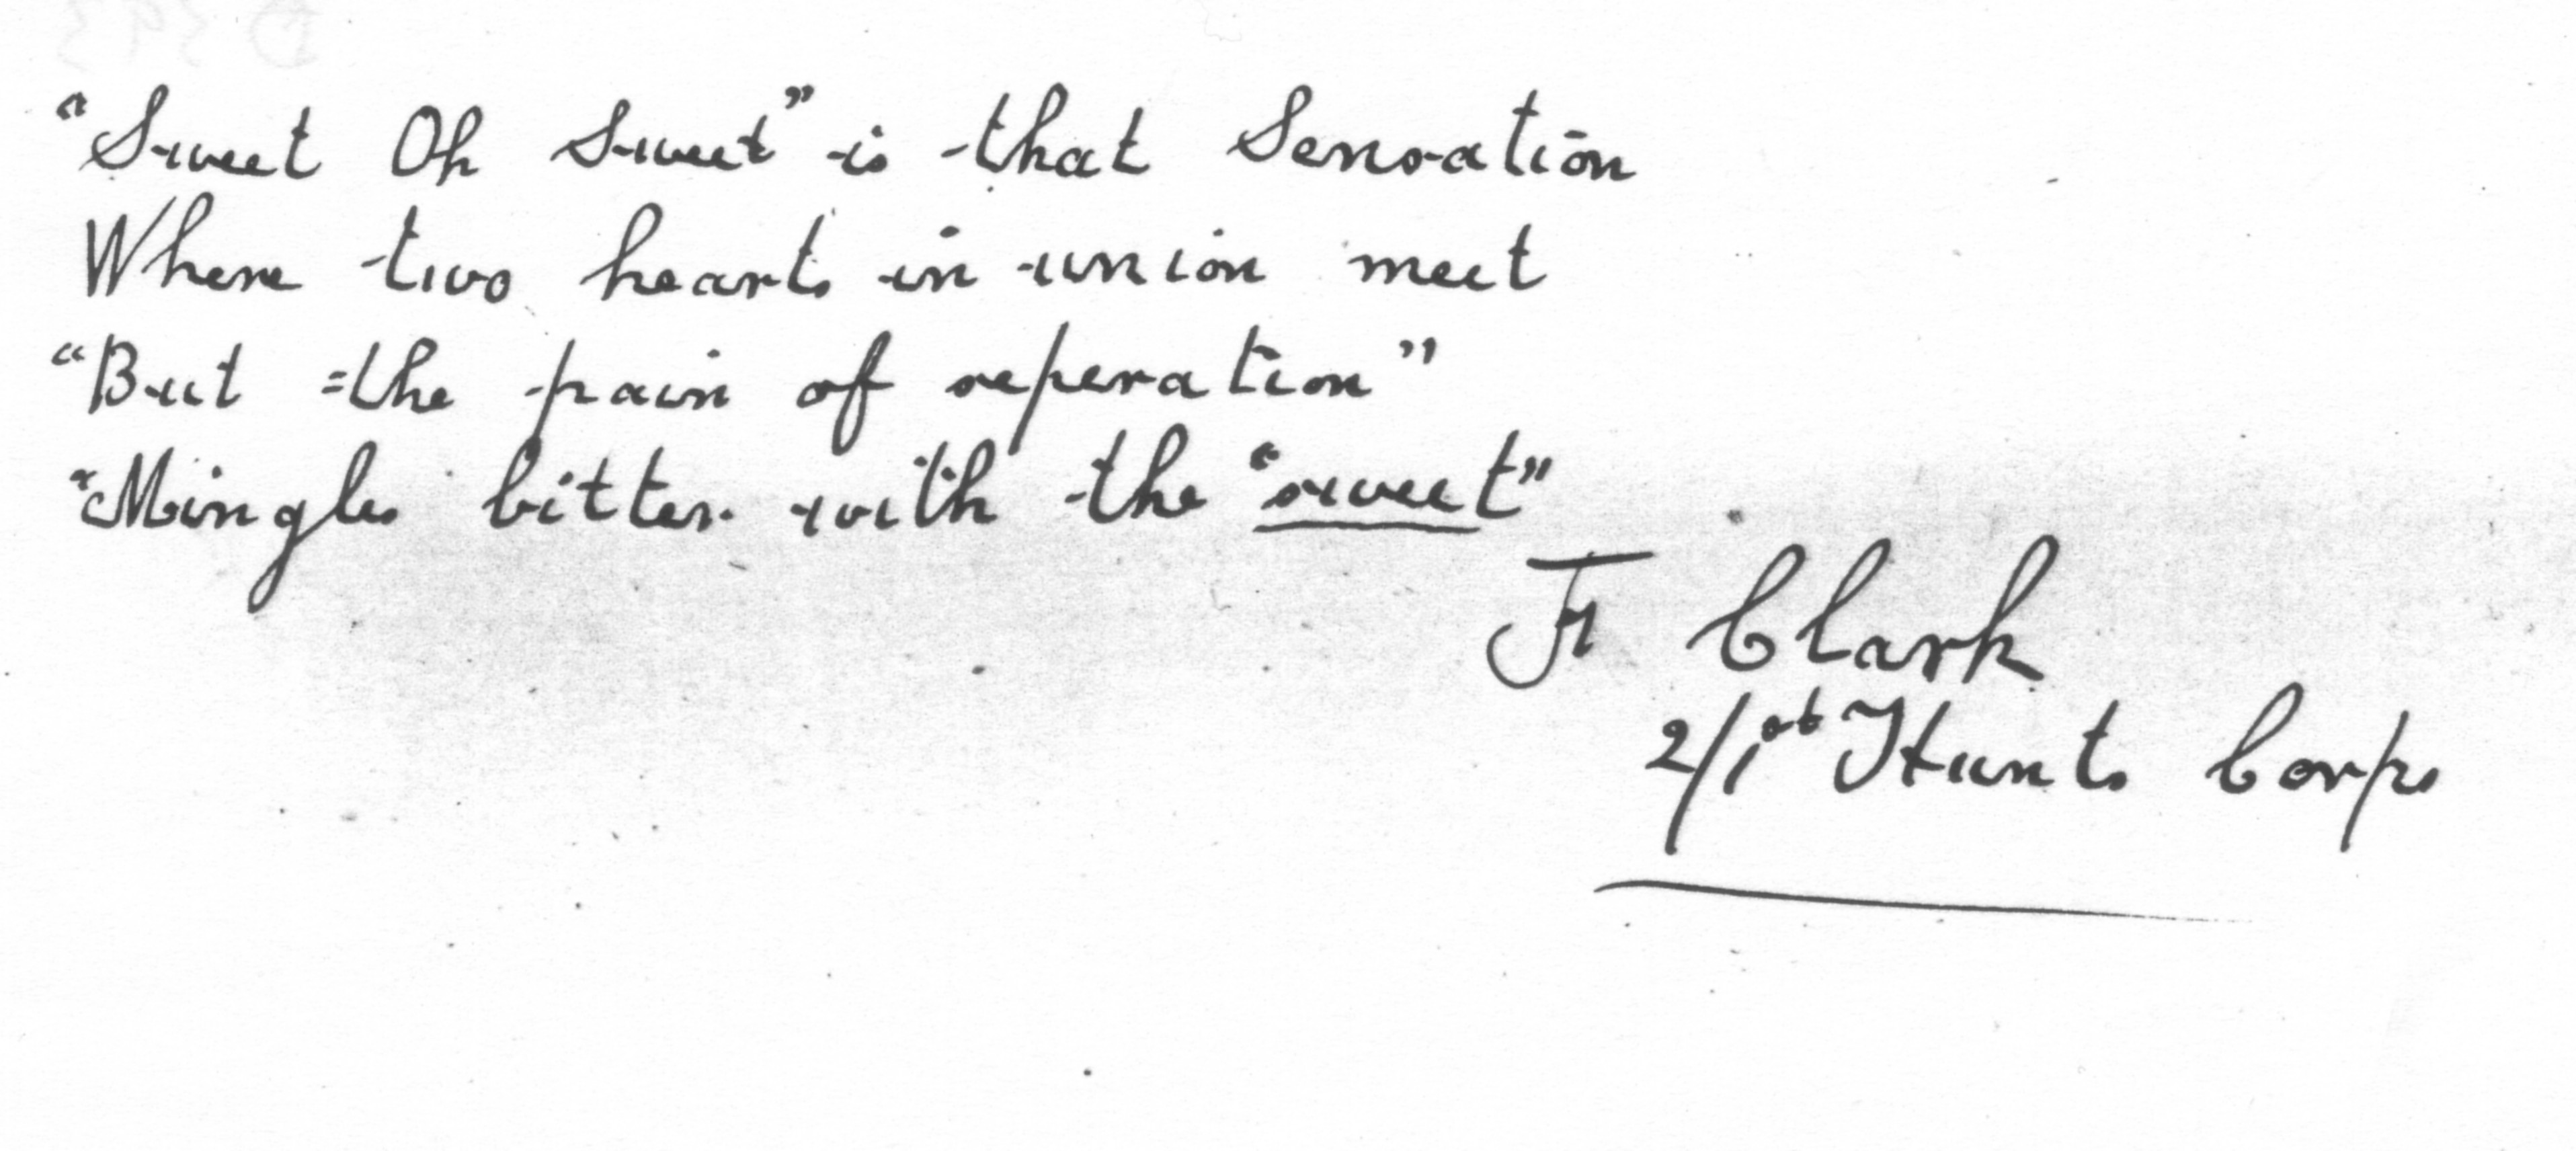 "Sweet Oh Sweet" is that Sensation
Where two hearts in union meet
"But the pain of seperation"
"Mingles bitter with the "sweet"
F Clark
2/1st Hunts Corps